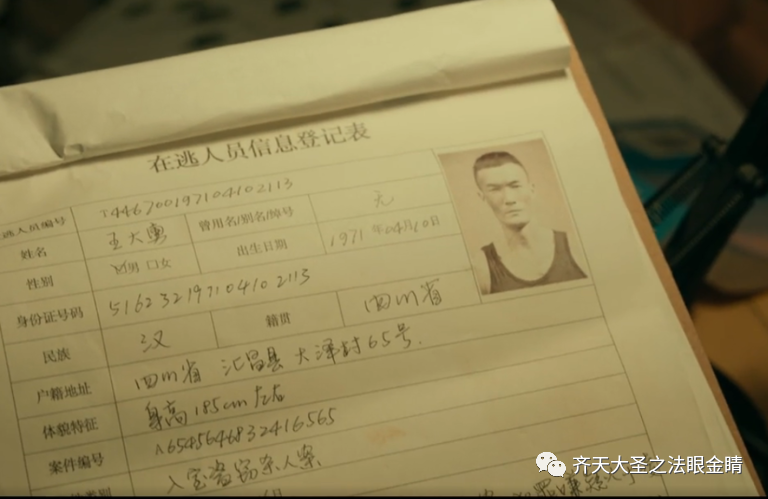 在逃人员信息登记表
逃人员编号 T446700197104102113
姓名 王大勇 曾用名/别名/绰号 无
性别 ☑男 口女 出生日期 1971年04月10日
身份证号码 516232197104102113
民族 汉 籍贯 四川省
户籍地址 四川省 汇昌县 大泽村65号.
体貌特征 身高185cm左右
案件编号 A6545646832416565
入室盗窃杀人案
齐天大圣之法眼金睛